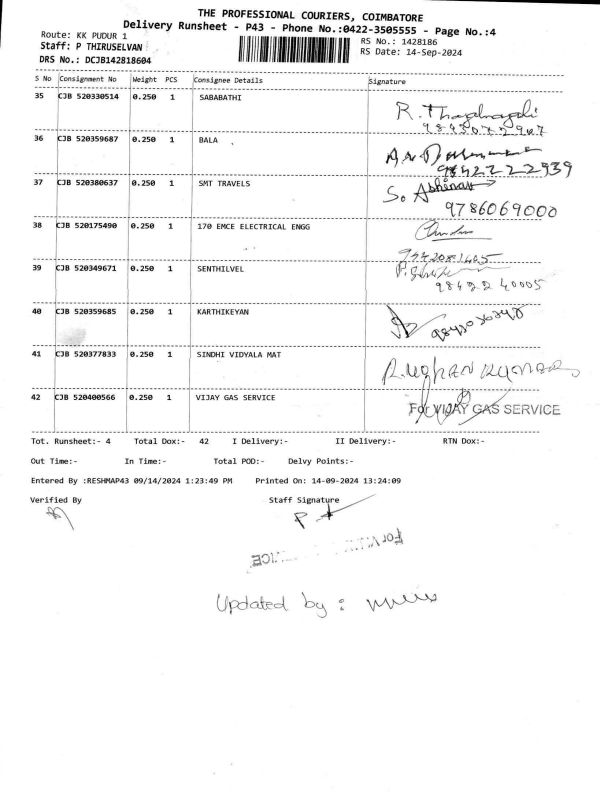 THE PROFESSIONAL COURIERS, COIMBATORE
Delivery Runsheet - P43 - Phone No.:0422-3505555 - Page No.:4
Route: KK PUDUR 1
RS No.: 1428186
Staff: P THIRUSELVAN
RS Date: 14-Sep-2024
DRS No.: DCJB142818604
S No Consignment No Weight PCS Consignee Details Signature
35 CJB 520330514 0.250 1 SABABATHI
36 CJB 520359687 0.250 1 BALA
9842222939
37 CJB 520380637 0.250 1 SMT TRAVELS
So Abhinav
9786069000
38 CJB 520175490 0.250 1 170 EMCE ELECTRICAL ENGG
39 CJB 520349671 0.250 1 SENTHILVEL
98422 40005
40 CJB 520359685 0.250 1 KARTHIKEYAN
41 CJB 520377833 0.250 1 SINDHI VIDYALA MAT
42 CJB 520400566 0.250 1 VIJAY GAS SERVICE
For VIJAY GAS SERVICE
Tot. Runsheet:- 4 Total Dox:- 42 I Delivery:- II Delivery:- RTN Dox:-
Out Time:- In Time:- Total POD:- Delvy Points:-
Entered By :RESHMAP43 09/14/2024 1:23:49 PM Printed On: 14-09-2024 13:24:09
Verified By Staff Signature
Updated by :